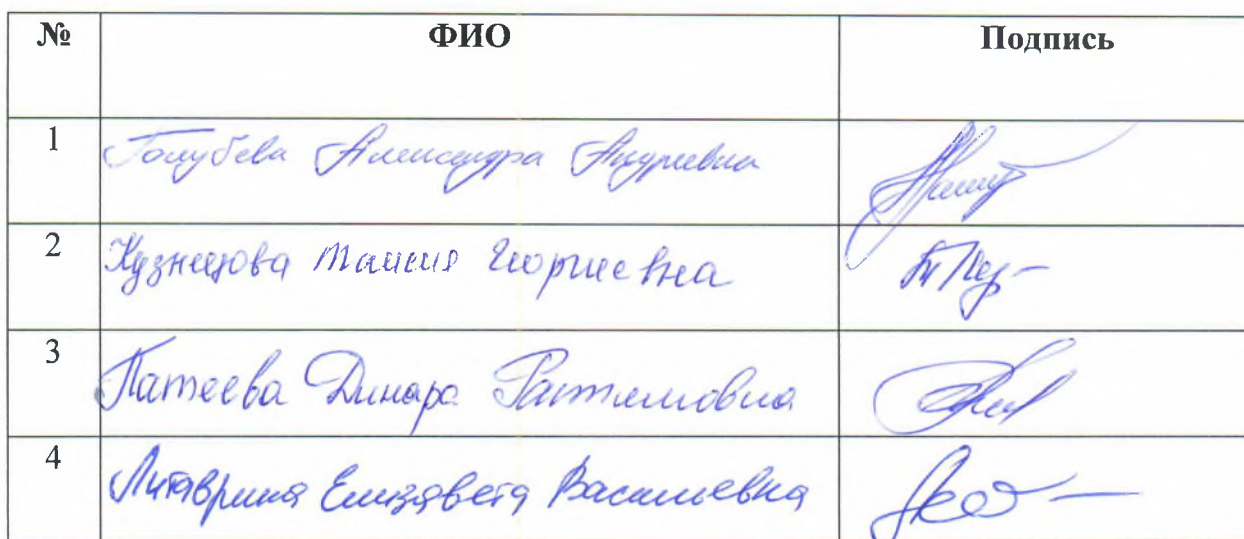 № ФИО Подпись
1 Голубева Александра Андреевна
2 Кузнецова Таисия Георгиевна
3 Патеева Динара
4 Литаврина Елизавета Васильевна